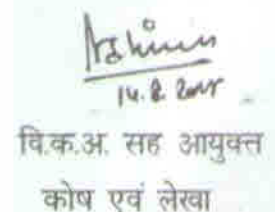 14.8.2015
वि.क.अ. सह आयुक्त
कोष एवं लेखा